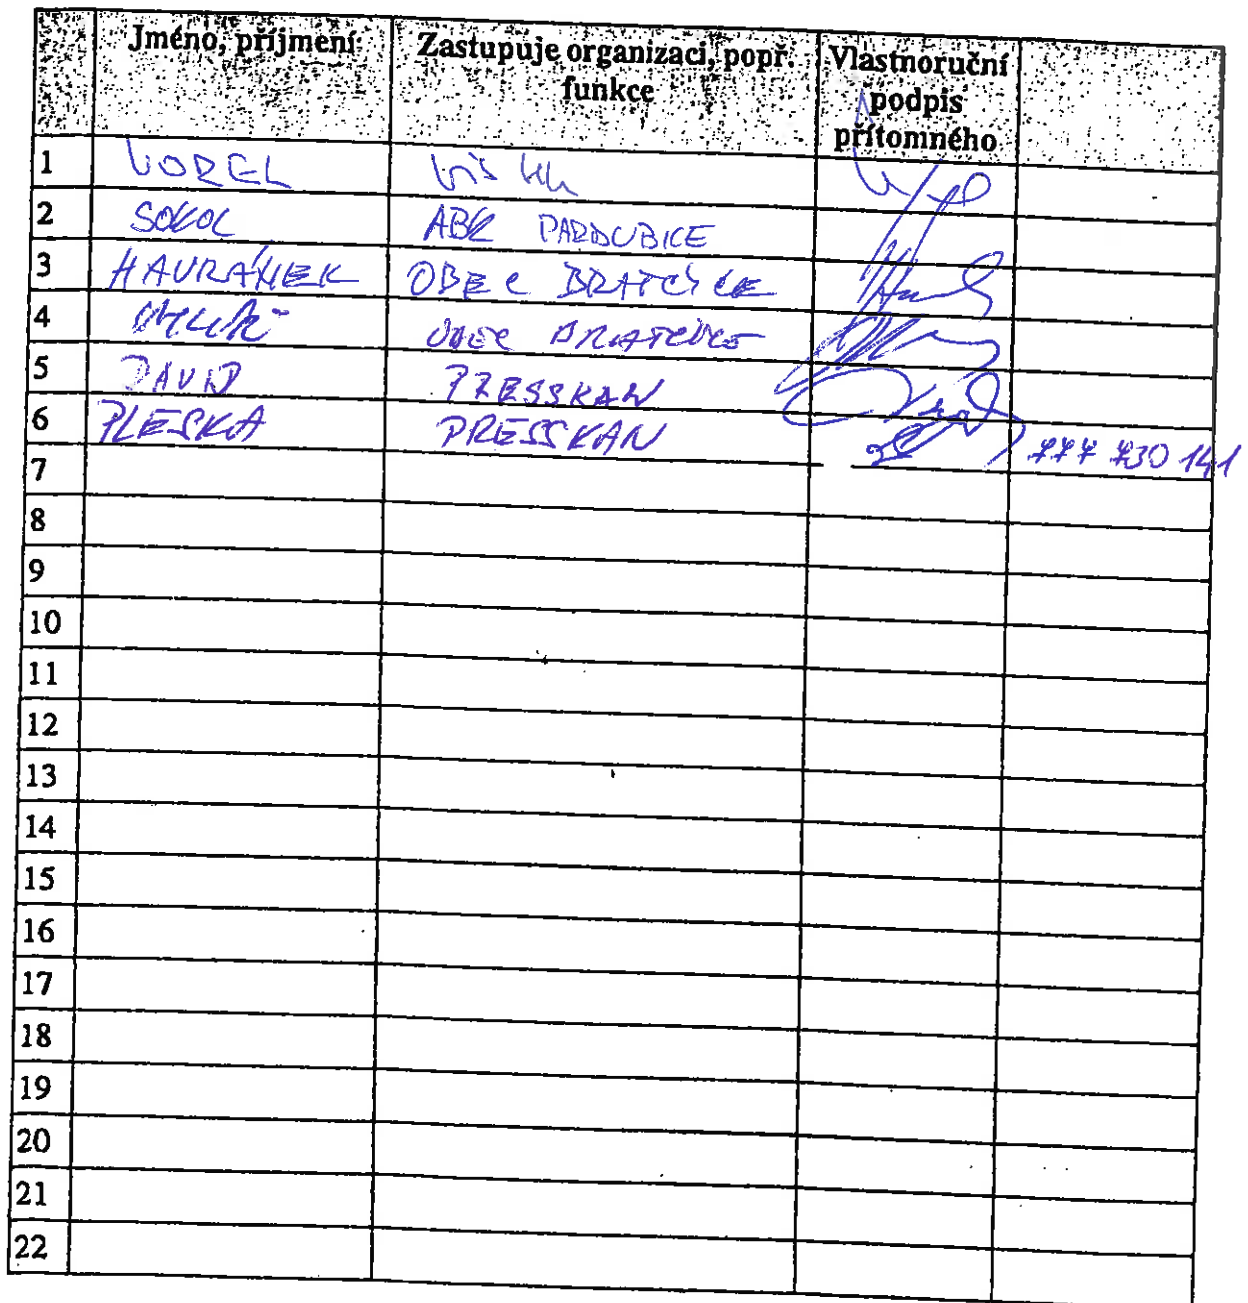 Jméno, příjmení Zastupuje organizaci, popř. funkce Vlastnoruční podpis přítomného
1 VOREL
2 SOKOL ABK PARDUBICE
3 HAVRÁNEK OBEC BRATČICE
4 OBEC BRATČICE
5 DAVID PRESSKAN
6 PLESKA PRESSKAN 777 730 141
7
8
9
10
11
12
13
14
15
16
17
18
19
20
21
22